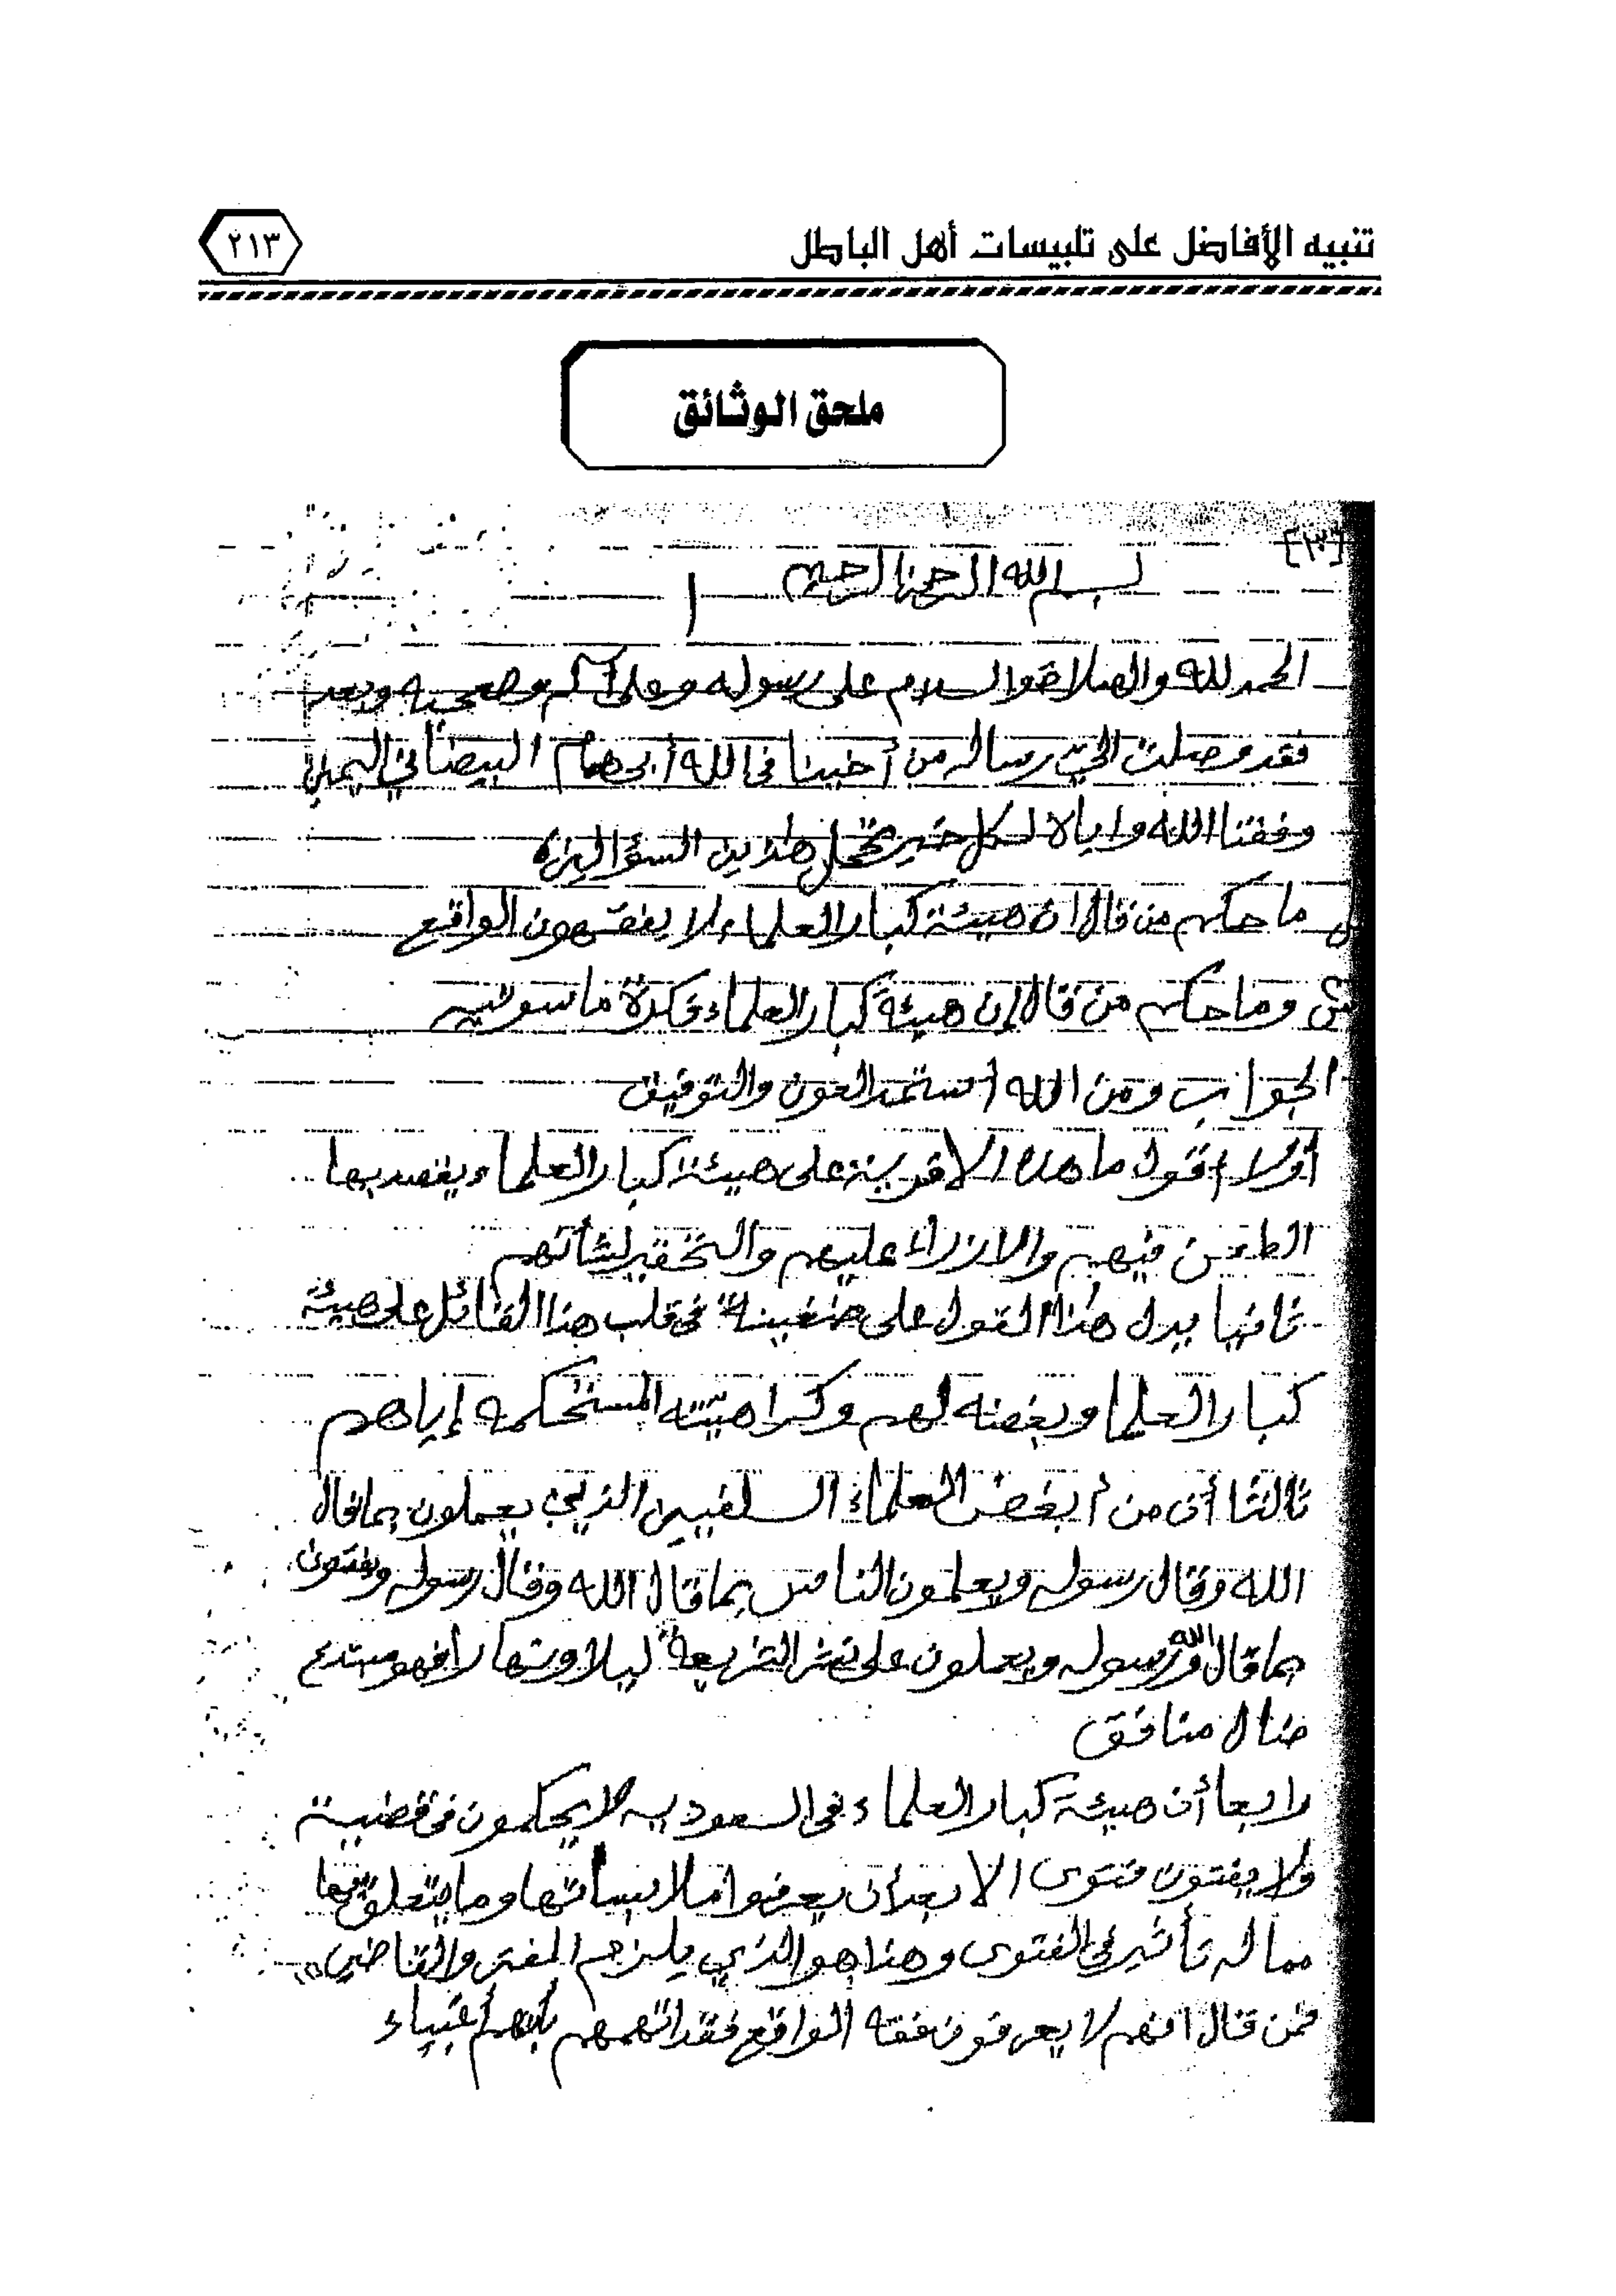 تنبيه الأفاضل على تلبيسات أهل الباطل
٢١٣
ملحق الوثائق
[١٣]
بسم الله الرحمن الرحيم
الحمد لله والصلاة والسلام على رسوله وعلى آله وصحبه وبعد
فقد وصلت إليّ رساله من أخينا في الله أبي همام البيضاني اليمني
وفقنا الله واياه لكل خير تحمل هذين السؤالين
س ما حكم من قال ان هيئة كبار العلماء لا يفقهون الواقع
س وما حكم من قال إن هيئة كبار العلماء ماسونيه
الجواب ومن الله أستمد العون والتوفيق
أولا أقول ما هذه الا فرية على هيئة كبار العلماء يقصد بها
الطعن فيهم والازراء عليهم والتحقير لشأنهم
ثانيا يدل هذا القول على ضغينة في قلب هذا القائل على هيئة
كبار العلماء وبغضه لهم وكراهيته المستحكمه إياهم
ثالثا أن من أبغض العلماء السلفيين الذين يعملون بما قال
الله وقال رسوله ويعلمون الناس بما قال الله وقال رسوله ويفتون
بما قال الله ورسوله ويعملون على نشر الشريعة ليلا ونهارا فهو مبتدع
ضال منافق
رابعا أن هيئة كبار العلماء في السعوديه لا يحكمون في قضية
ولا يفتون فتوى الا بعد أن يعرفوا ملابساتها وما يتعلق بها
مما له تأثير في الفتوى وهذا هو الذي يلزم المفتي والقاضي
فمن قال انهم لا يعرفون فقه الواقع فقد اتهمهم بأنهم أغبياء